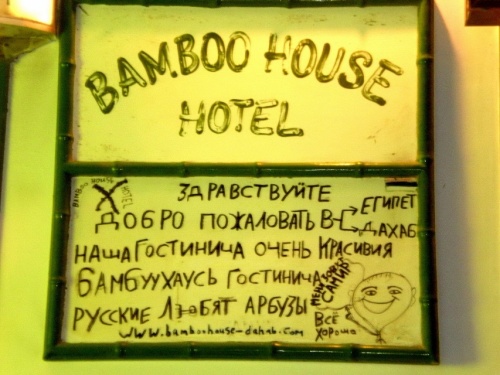 BAMBOO HOUSE
HOTEL
BAMBOO HOUSE
HOTEL
ЗДРАВСТВУЙТЕ
ДОБРО ПОЖАЛОВАТЬ В
ЕГИПЕТ
ДАХАБ
НАША ГОСТИНИЧА ОЧЕНЬ КРАСИВИЯ
БАМБУУХАУСЬ ГОСТИНИЧА
РУССКИЕ ЛЮБЯТ АРБУЗЫ
МЕНЯ ЗОВУТ
САМИР
ВСЁ
ХОРОШО
www.bamboohouse-dahab.com